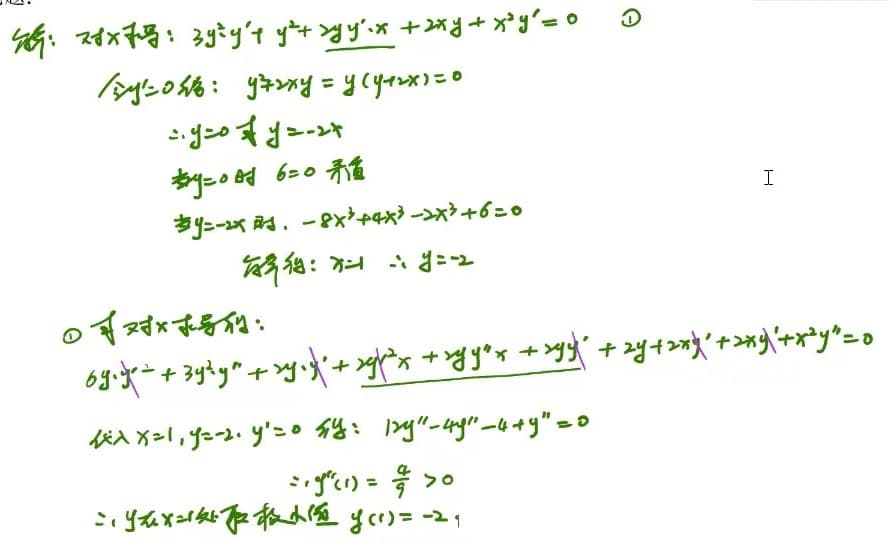 解: 对x求导: 3y²y'+y²+2yy'·x+2xy+x²y'=0 ①
令y'=0得: y²+2xy=y(y+2x)=0
∴y=0或y=-2x
当y=0时 6=0 矛盾
当y=-2x时, -8x³+4x³-2x³+6=0
解得: x=1 ∴y=-2
①再对x求导得:
6y·y'²+3y²y''+2y·y'+2y'²x+2yy''x+2yy'+2y+2xy'+2xy'+x²y''=0
代入x=1,y=-2,y'=0得: 12y''-4y''-4+y''=0
∴y''(1)=4/9>0
∴y在x=1处取极小值 y(1)=-2,